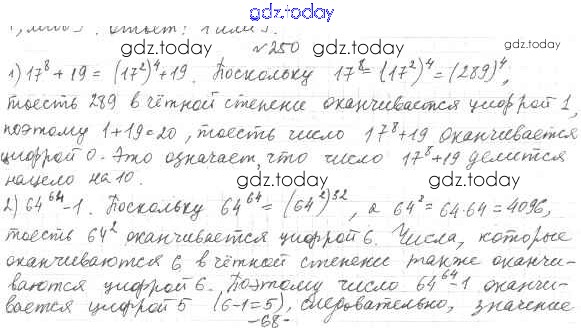 gdz.today
ответ:
gdz.today gdz.today
№250
1) 17⁸ + 19 = (17²)⁴ + 19. Поскольку 17⁸ = (17²)⁴ = (289)⁴,
gdz.today
тоесть 289 в чётной степене оканчивается цифрой 1,
поэтому 1+19=20, тоесть число 17⁸+19 оканчивается
gdz.today gdz.today
цифрой 0. Это означает, что число 17⁸+19 делится
нацело на 10.
gdz.today
2) 64⁶⁴-1. Поскольку 64⁶⁴ = (64²)³², а 64² = 64·64 = 4096,
тоесть 64² оканчивается цифрой 6. Числа, которые
gdz.today gdz.today
оканчиваются 6 в чётной степени также оканчи-
ваются цифрой 6. Поэтому число 64⁶⁴-1 оканчи-
gdz.today
вается цифрой 5 (6-1=5), следовательно, значение
-68-